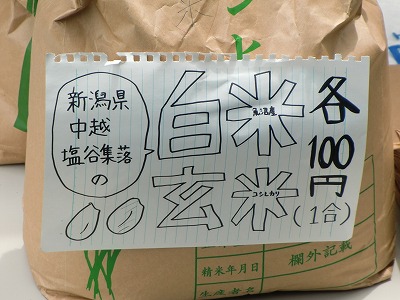 新潟県
中越
塩谷集落
の
白米
魚沼産
玄米
コシヒカリ
各
100
円
(1合)
欄外記載
精米年月日